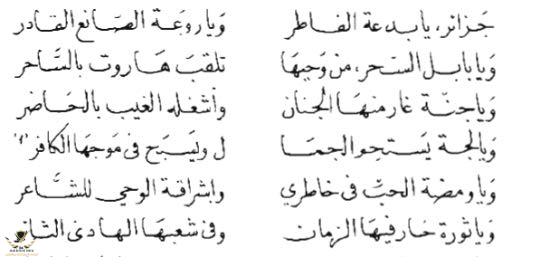 جَزائر، يا بدعة الفاطر ويا روعَة الصّانع القادر
ويا بابل السّحر، من وحيها تلقبَ هَاروت بالسَّاحر
ويا جنّة غار منهَا الجنان وأشغله الغيب بالحَاضر
ويا لجة يَستحم الجمَا ل ويَسبَح في مَوجهَا الكافر "١"
ويا ومضة الحبّ في خاطري واشراقة الوحي للشَّاعر
ويا ثورة حار فيهَا الزمان وفى شعبهَا الهادئ الثائر